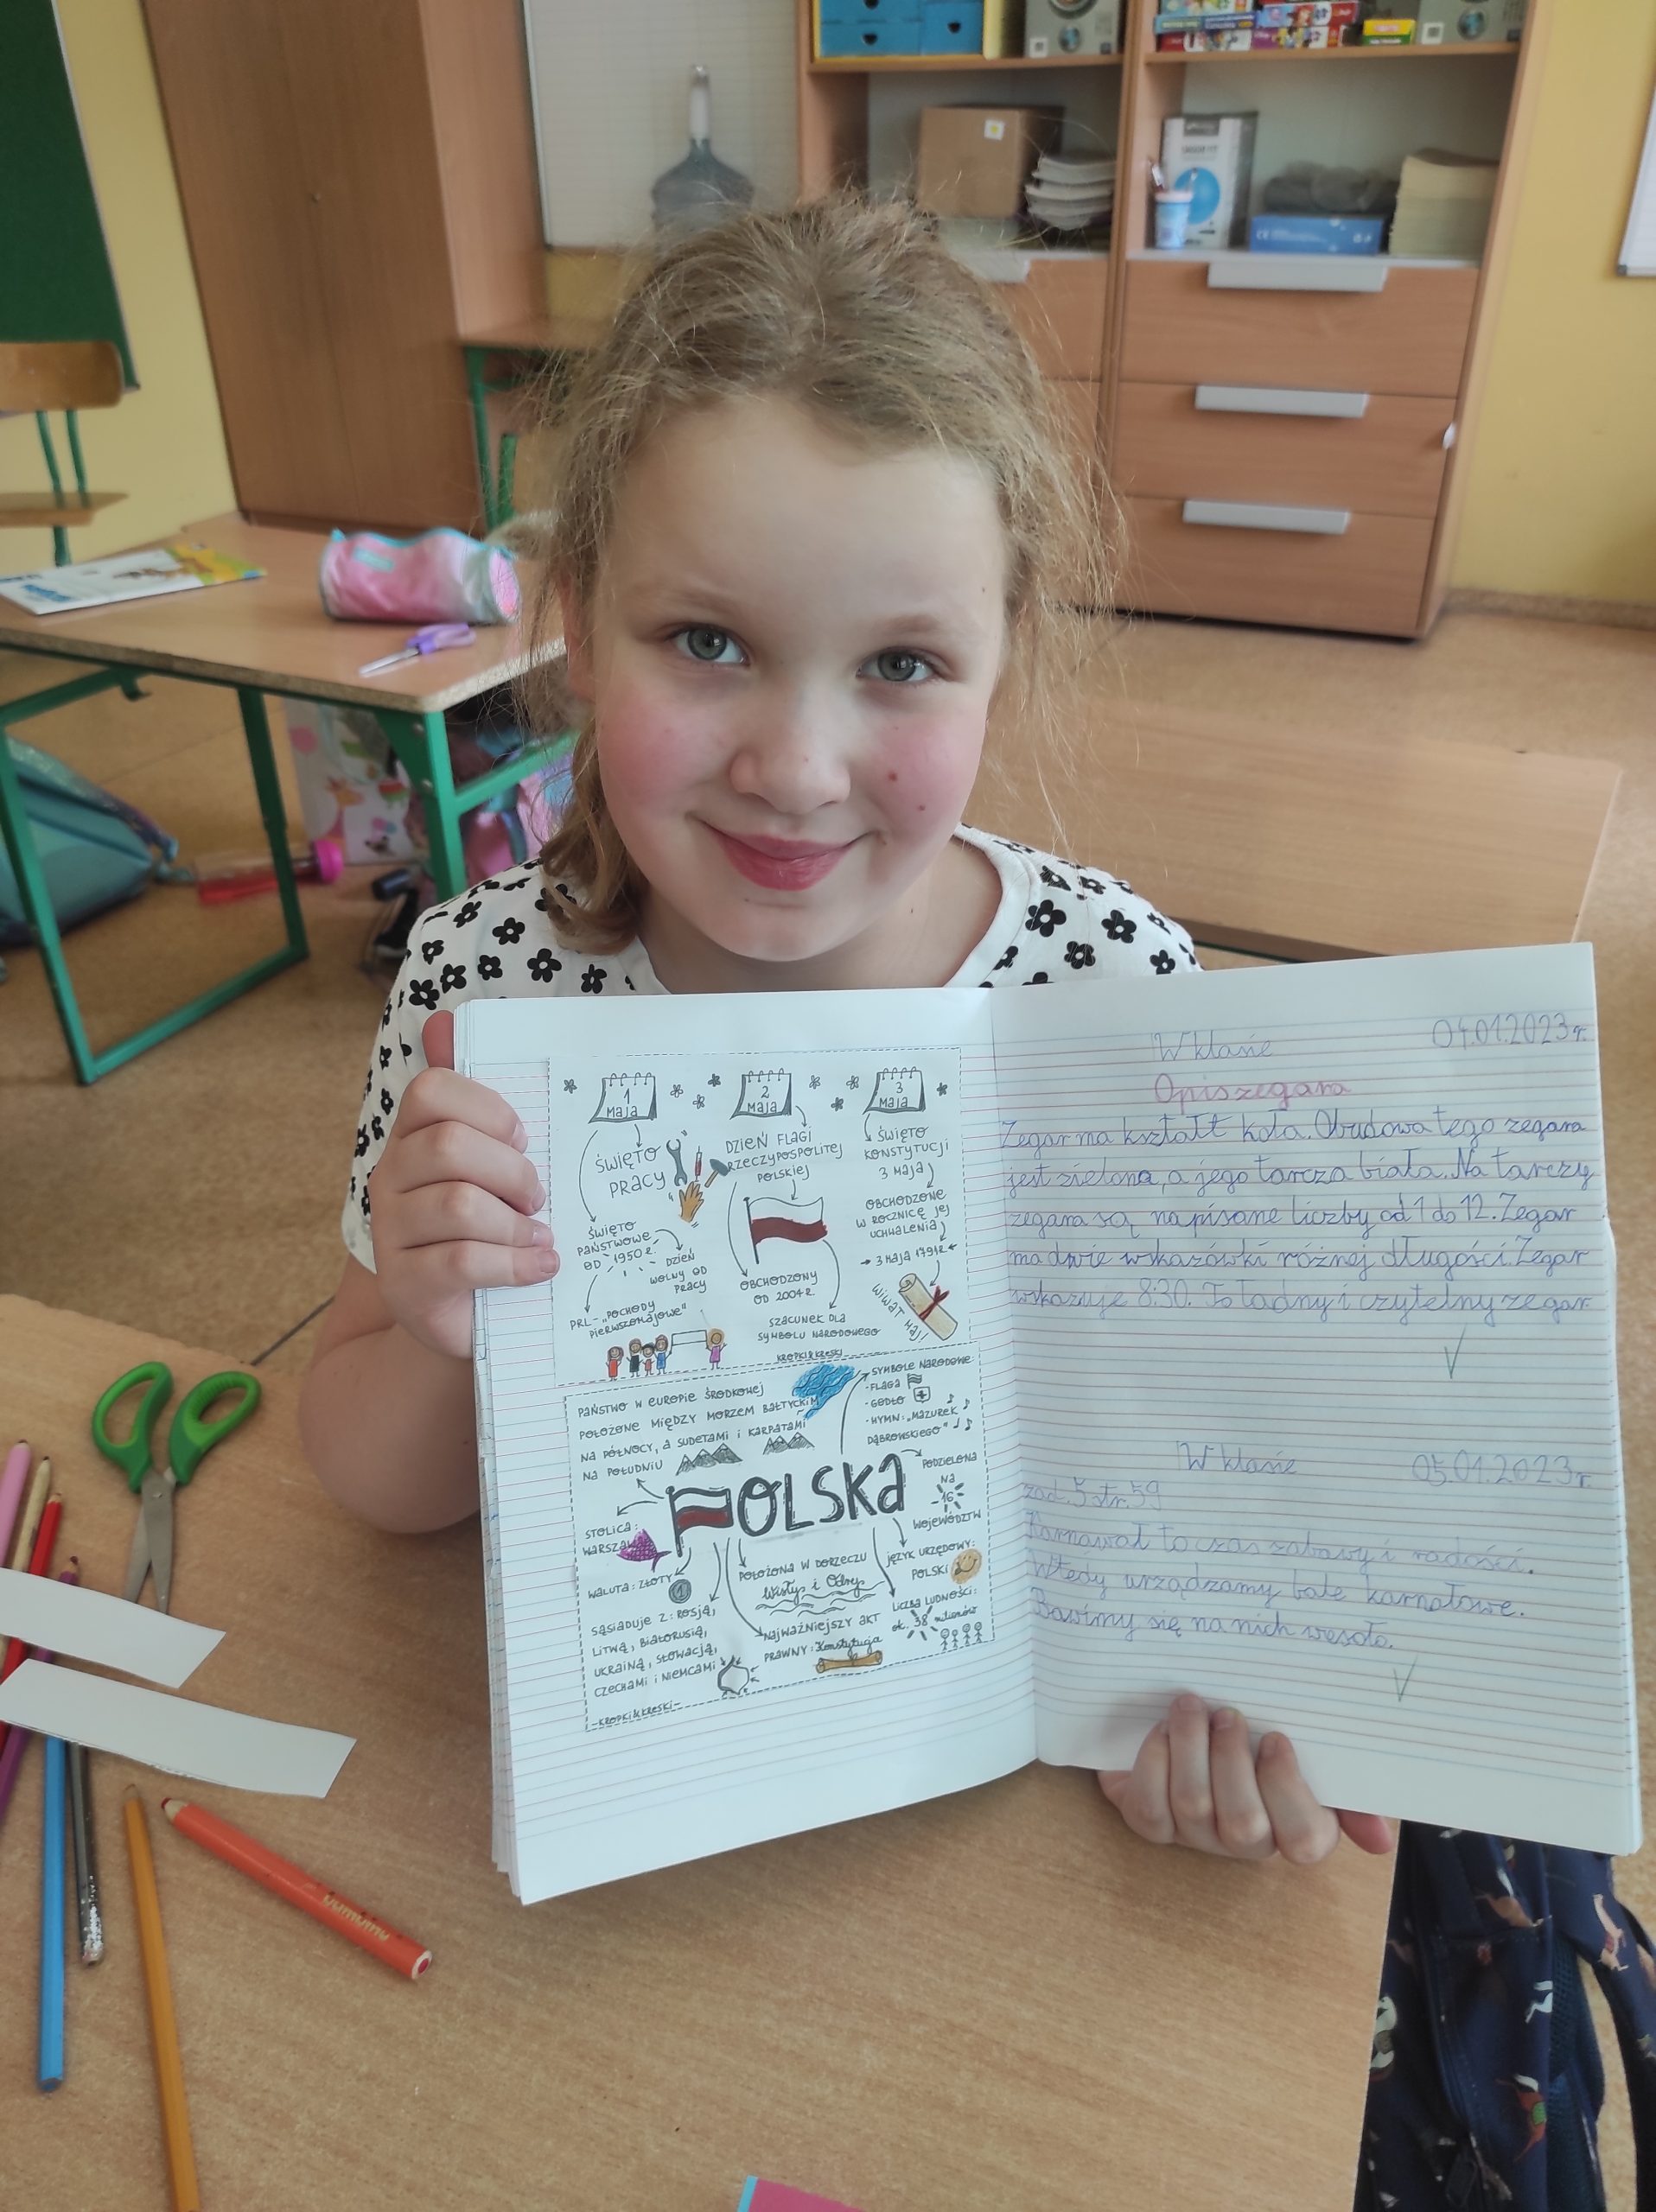 1
maja
2
maja
3
maja
ŚWIĘTO
PRACY
ŚWIĘTO
PAŃSTWOWE
OD 1950 R.
DZIEŃ
WOLNY OD
PRACY
PRL - „POCHODY
PIERWSZOMAJOWE"
DZIEŃ FLAGI
RZECZYPOSPOLITEJ
POLSKIEJ
OBCHODZONY
OD 2004 R.
SZACUNEK DLA
SYMBOLU NARODOWEGO
ŚWIĘTO
KONSTYTUCJI
3 MAJA
OBCHODZONE
W ROCZNICĘ JEJ
UCHWALENIA
3 MAJA 1791R
WIWAT MAJ!
KROPKI&KRESKI
PAŃSTWO W EUROPIE ŚRODKOWEJ
POŁOŻONE MIĘDZY MORZEM BAŁTYCKIM
NA PÓŁNOCY, A SUDETAMI I KARPATAMI
NA POŁUDNIU
SYMBOLE NARODOWE:
-FLAGA
-GODŁO
-HYMN: „MAZUREK
DĄBROWSKIEGO"
POLSKA
PODZIELONA
NA
16
WOJEWÓDZTW
STOLICA:
WARSZAWA
WALUTA: ZŁOTY
1
SĄSIADUJE Z: ROSJĄ,
LITWĄ, BIAŁORUSIĄ,
UKRAINĄ, SŁOWACJĄ,
CZECHAMI I NIEMCAMI
POŁOŻONA W DORZECZU
Wisły i Odry
NAJWAŻNIEJSZY AKT
PRAWNY: Konstytucja
JĘZYK URZĘDOWY:
POLSKI
LICZBA LUDNOŚCI:
ok. 38 milionów
-KROPKI&KRESKI-
W klasie 04.01.2023r.
Opis zegara
Zegar ma kształt koła. Obudowa tego zegara
jest zielona, a jego tarcza biała. Na tarczy
zegara są napisane liczby od 1 do 12. Zegar
ma dwie wskazówki różnej długości. Zegar
wskazuje 8:30. To ładny i czytelny zegar.
W klasie 05.01.2023r.
zad. 5 str. 59
Karnawał to czas zabawy i radości.
Wtedy urządzamy bale karnałowe.
Bawimy się na nich wesoło.